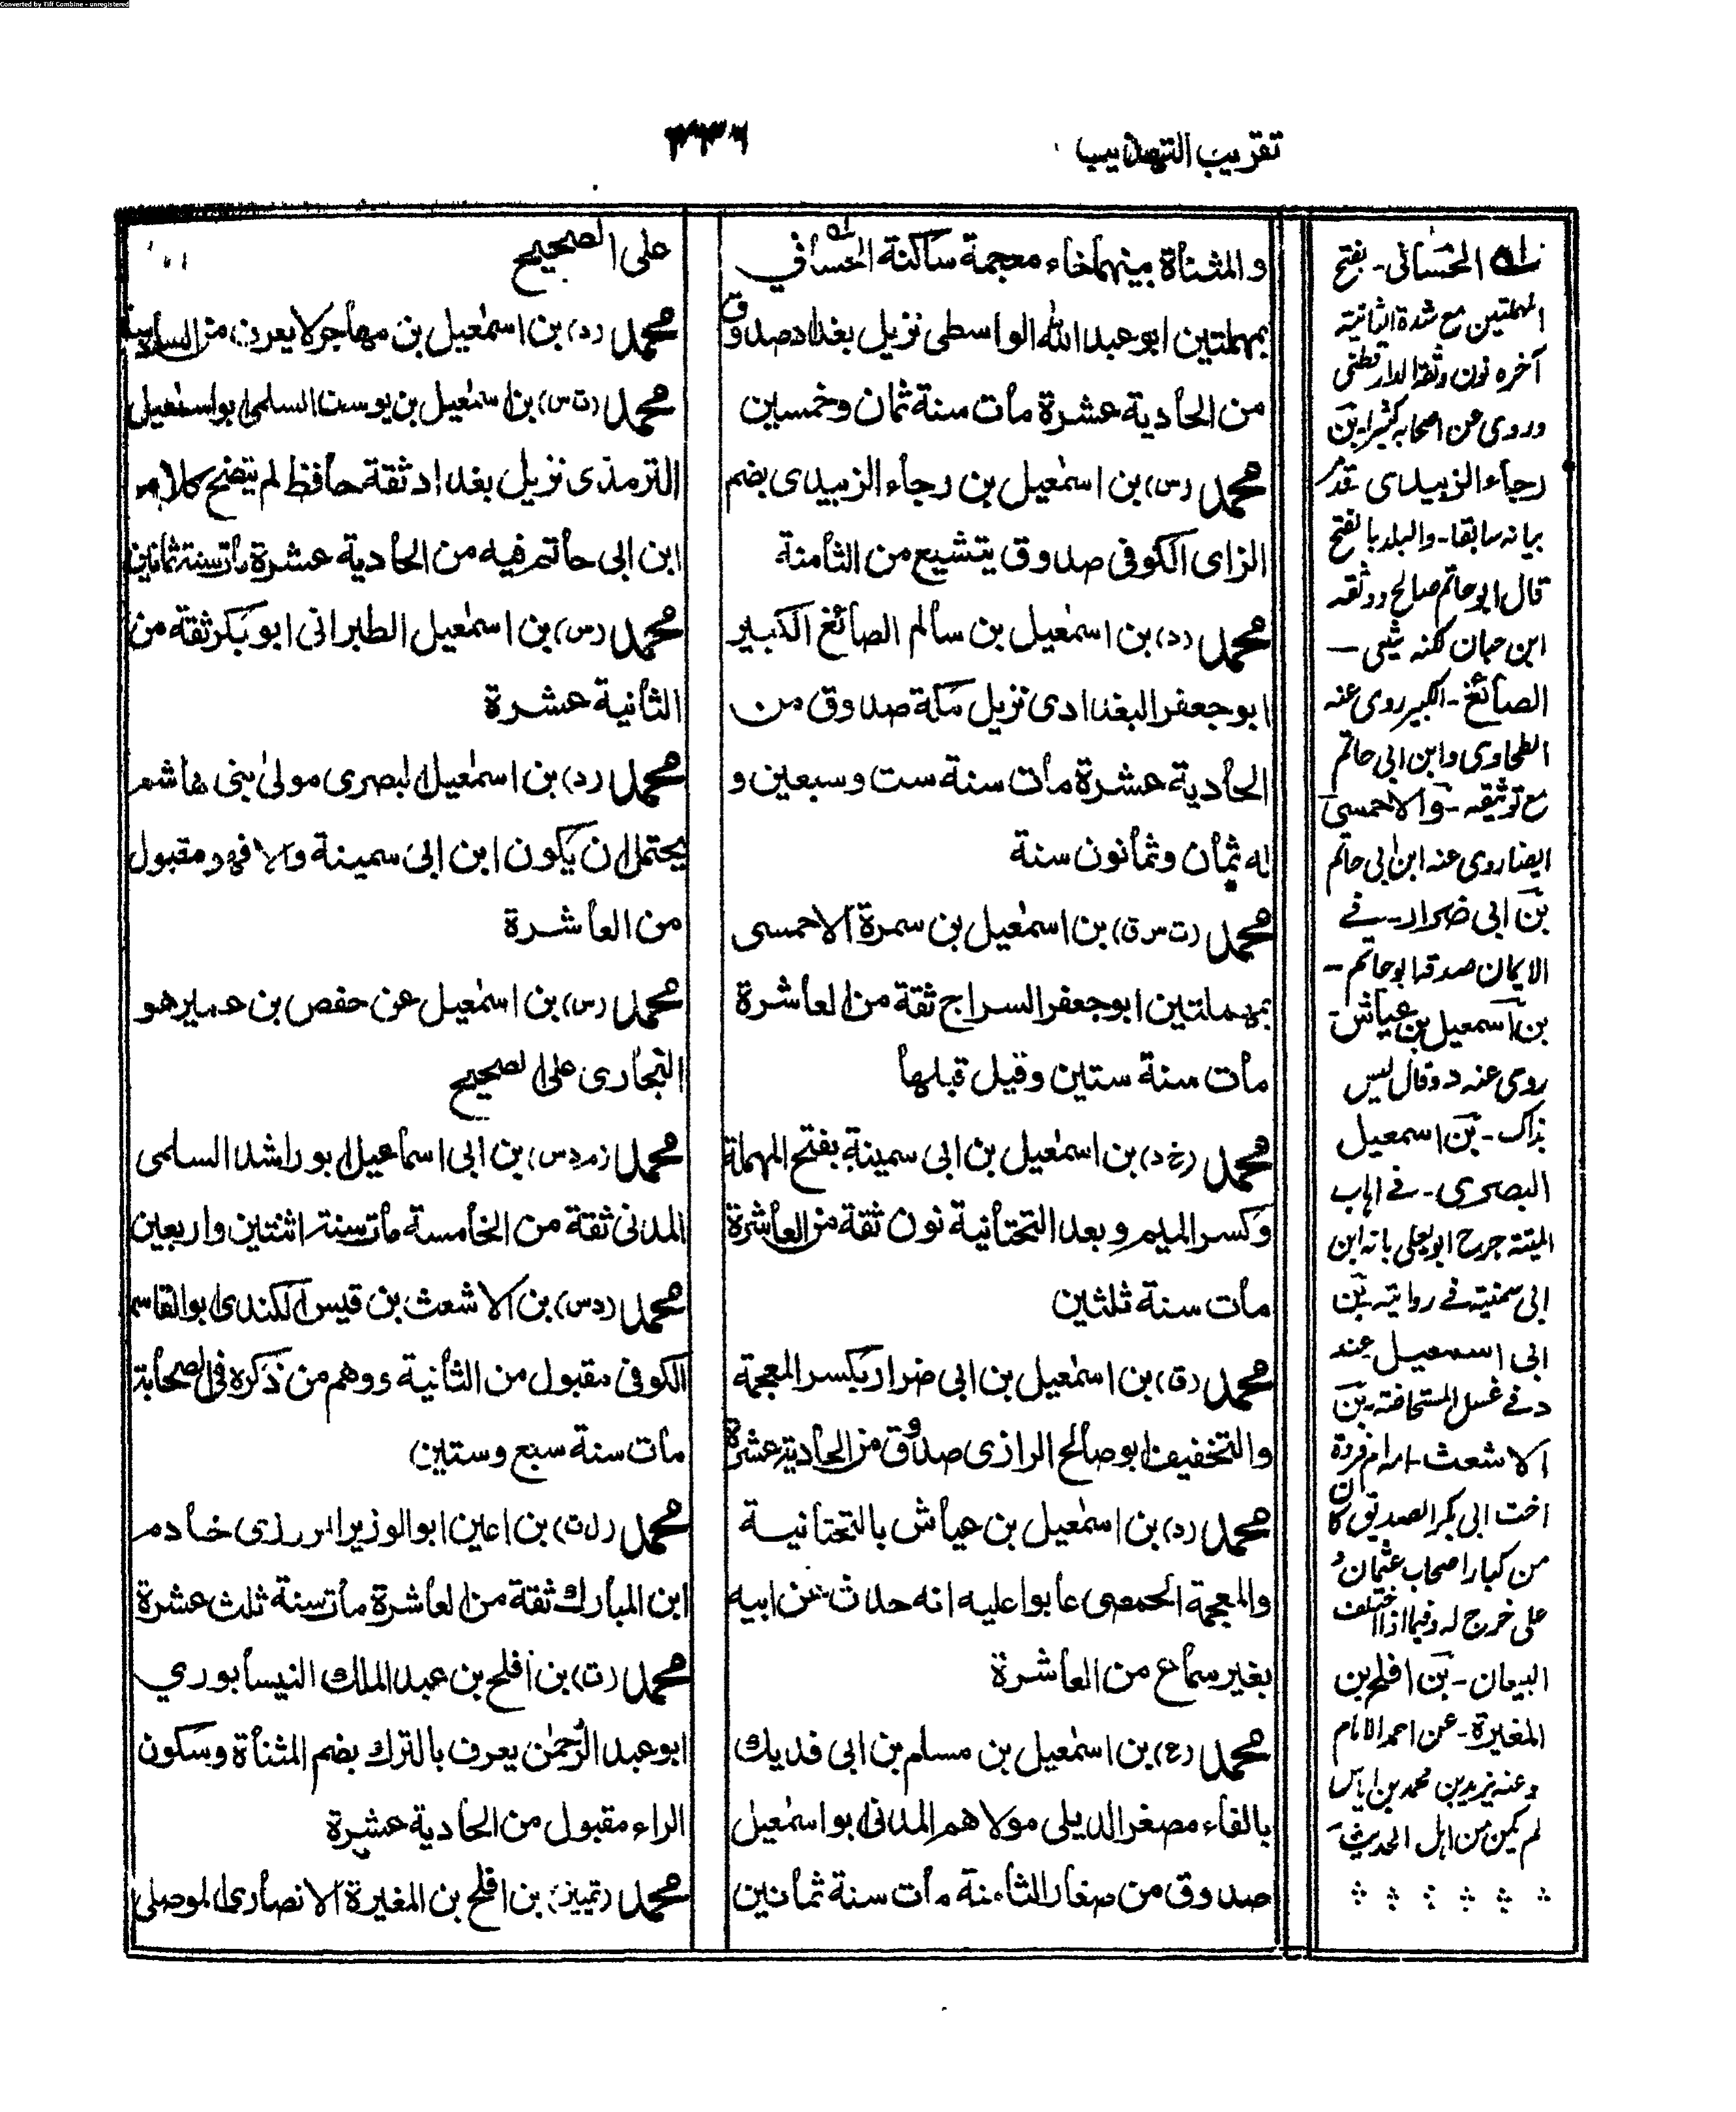 Converted by Tiff Combine - unregistered
تقريب التهذيب
والمثناة بينهما خاء معجمة ساكنة الحساني
بمهملتين ابو عبد الله الواسطى نزيل بغداد صدوق
من الحادية عشرة مات سنة ثمان وخمسين
محمد (س) بن اسمٰعيل بن رجاء الزبيدى بضم
الزاى الكوفى صدوق يتشيع من الثامنة
محمد (د) بن اسمٰعيل بن سالم الصائغ الكبير
ابو جعفر البغدادى نزيل مكة صدوق من
الحادية عشرة مات سنة ست وسبعين و
له ثمان وثمانون سنة
محمد (ت س ق) بن اسمٰعيل بن سمرة الاحمسى
بمهملتين ابو جعفر السراج ثقة من العاشرة
مات سنة ستين وقيل قبلها
محمد (خ د) بن اسمٰعيل بن ابى سمينة بفتح المهملة
وكسر الميم وبعد التحتانية نون ثقة من العاشرة
مات سنة ثلثين
محمد (ق) بن اسمٰعيل بن ابى ضرار بكسر المعجمة
والتخفيف ابو صالح الرازى صدوق من الحادية عشرة
محمد (د) بن اسمٰعيل بن عياش بالتحتانية
والمعجمة الحمصى عابوا عليه انه حدث عن ابيه
بغير سماع من العاشرة
محمد (ع) بن اسمٰعيل بن مسلم بن ابى فديك
بالفاء مصغر الديلى مولاهم المدنى ابو اسمٰعيل
صدوق من صغار الثامنة مات سنة ثمانين
على الصحيح
محمد (د) بن اسمٰعيل بن مهاجر لا يعرف من السادسة
محمد (ت س) بن اسمٰعيل بن يوسف السلمى ابو اسمٰعيل
الترمذى نزيل بغداد ثقة حافظ لم يتضح كلام
ابن ابى حاتم فيه من الحادية عشرة مات سنة ثمانين
محمد (س) بن اسمٰعيل الطبرانى ابو بكر ثقة من
الثانية عشرة
محمد (د) بن اسمٰعيل البصرى مولىٰ بنى هاشم
يحتمل ان يكون ابن ابى سمينة والا فهو مقبول
من العاشرة
محمد (س) بن اسمٰعيل عن حفص بن عمير هو
البخارى على الصحيح
محمد (م د س) بن ابى اسماعيل ابو راشد السلمى
المدنى ثقة من الخامسة مات سنة اثنتين واربعين
محمد (د س) بن الاشعث بن قيس الكندى ابو القاسم
الكوفى مقبول من الثانية ووهم من ذكره فى الصحابة
مات سنة سبع وستين
محمد (ل ت) بن اعين ابو الوزير المروزى خادم
ابن المبارك ثقة من العاشرة مات سنة ثلث عشرة
محمد (ت) بن افلح بن عبد الملك النيسابوري
ابو عبد الرحمٰن يعرف بالترك بضم المثناة وسكون
الراء مقبول من الحادية عشرة
محمد (تمييز) بن افلح بن المغيرة الانصارى الموصلى
له الحسانى - بفتح
المهملتين مع شدة الثانية
آخره نون وثقه الدارقطنى
وروى عن اصحابه كثيرا - بن
رجاء الزبيدى قد مر
بيانه سابقا - والبلد بالفتح
قال ابو حاتم صالح ووثقه
ابن حبان لكنه شيعى -
الصائغ - الكبير روى عنه
الطحاوى وابن ابى حاتم
مع توثيقه - والاحمسى
ايضا روى عنه ابن ابى حاتم
بن ابى ضرار - فے
الايمان صدقه ابو حاتم -
بن اسمعيل بن عياش
روى عنه د وقال ليس
بذاك - بن اسمعيل
البصرى - فے اهاب
الميتة جرح ابو يعلى بانه ابن
ابى سمينة فے روايته - بن
ابى اسمعيل عند
د فے غسل المستحاضة - بن
الاشعث - امه ام فروة
اخت ابى بكر الصديق كان
من كبار اصحاب عثمان و
على خرج له د فيما اذا اختلف
البيعان - بن افلح بن
المغيرة - عن احمد الامام
وعنه يزيد بن محمد بن اياس
لم يكن من اهل الحديث